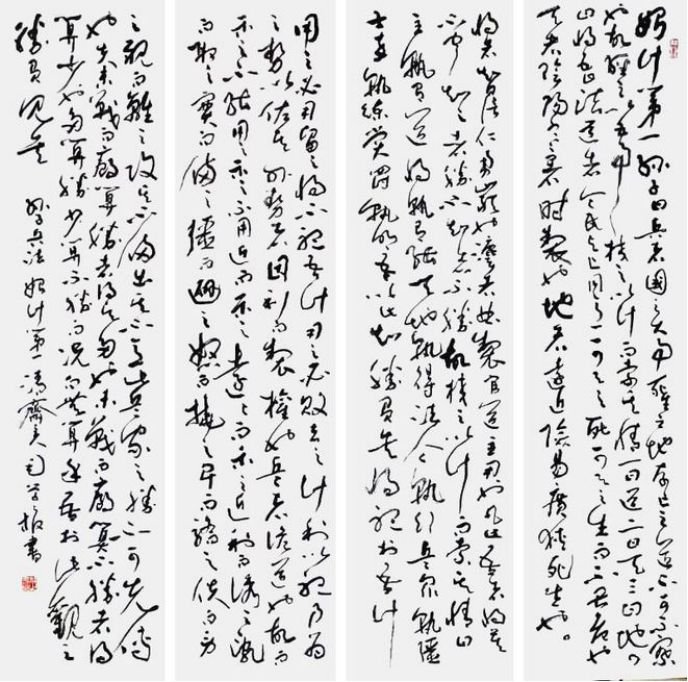 始计第一孙子曰兵者國之大事死生之地存亡之道不可不察
也故經之以五事校之以计而索其情一曰道二曰天三曰地四
曰将五曰法道者令民与上同意可与之死可与之生而不畏危也
天者陰陽寒暑时製也地者遠近險易廣狭死生也
将者智信仁勇嚴也法者曲製官道主用也凡此五者将莫
不聞知之者勝不知者不勝故校之以计而索其情曰
主孰有道将孰有能天地孰得法令孰行兵眾孰強
士卒孰练賞罰孰明吾以此知勝負矣将聽吾计
用之必勝留之将不聽吾计用之必败去之计利以聽乃為
之勢以佐其外勢者因利而製權也兵者詭道也故能而
示之不能用而示之不用近而示之遠遠而示之近利而誘之亂
而取之實而備之強而避之怒而撓之卑而驕之佚而勞
之親而離之攻其不備出其不意此兵家之勝不可先傳
也夫未戰而廟算勝者得算多也未戰而廟算不勝者得
算少也多算勝少算不勝而况而無算乎吾於此觀之
勝負見矣 孙子兵法始计第一 書